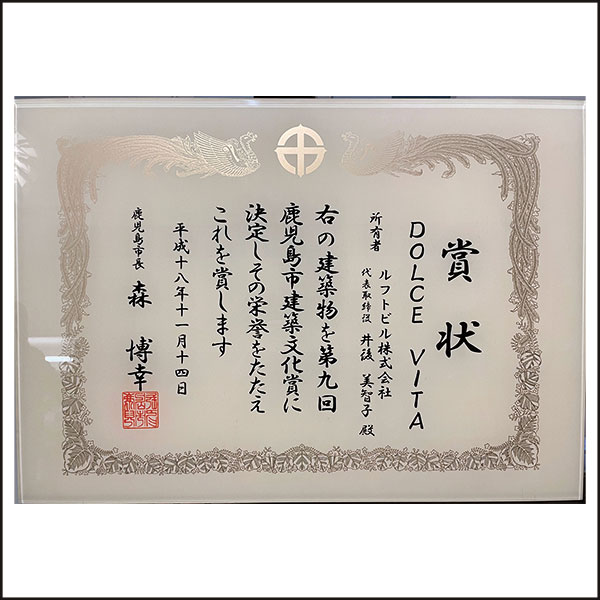 賞状
DOLCE VITA
所有者
ルフトビル株式会社
代表取締役 井後 美智子 殿
右の建築物を第九回
鹿児島市建築文化賞に
決定しその栄誉をたたえ
これを賞します
平成十八年十一月十四日
鹿児島市長 森 博幸